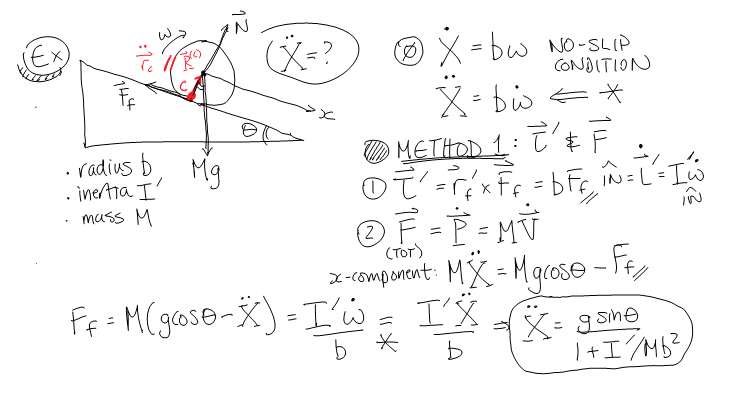 Ex
ω
N⃗
r̈⃗_c // R⃗^(c)
c
Ẍ = ?
F⃗_f
x
θ
Mg
· radius b
· inertia I'
· mass M
⓪ Ẋ = bω NO-SLIP CONDITION
Ẍ = bω̇ ⇐ *
METHOD 1: τ⃗' & F⃗
① τ⃗' = r⃗_f' × F⃗_f = bF_f // ÎN = L̇⃗' = I'ω̇ ÎN
② F⃗ (TOT) = Ṗ⃗ = MV̇⃗
x-component: MẌ = Mgcosθ - F_f //
F_f = M(gcosθ - Ẍ) = I'ω̇/b =* I'Ẍ/b² ⇒ Ẍ = gsinθ/(1 + I'/Mb²)